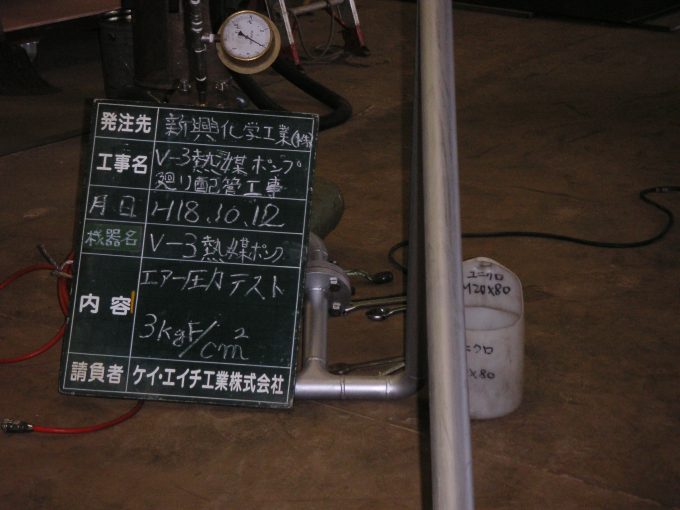 発注先 新興化学工業(株)
工事名 V-3熱媒ポンプ
廻り配管工事
月日 H18.10.12
機器名 V-3熱媒ポンプ
内容 エアー圧力テスト
3kgf/cm²
請負者 ケイ・エイチ工業株式会社
ユニクロ
M20x80
ニクロ
x80